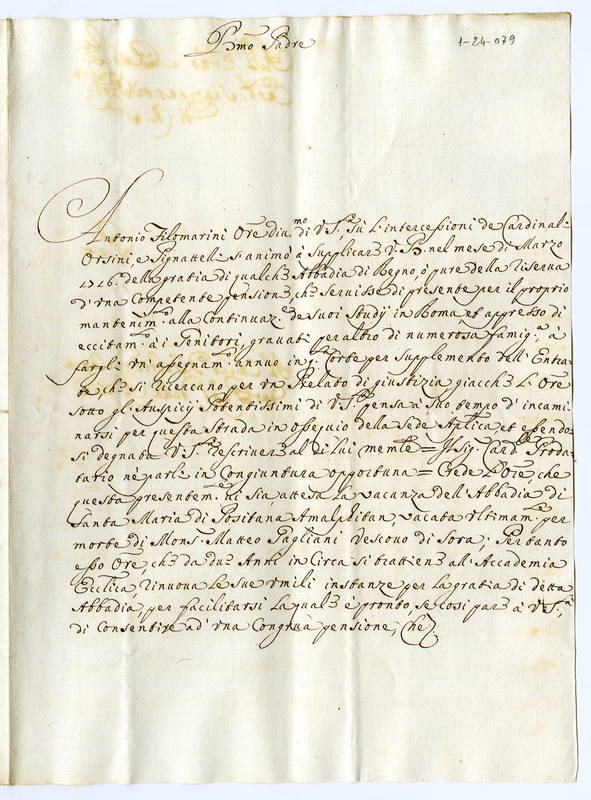 Bmo Padre
1-24-079
Antonio Filomarini Ore diumo di V. Sta., sù l'intercessioni de Cardinali
Orsini, e Pignattelli si animò à supplicare V. B. nel mese di Marzo
1726. della gratia di qualche Abbadia di Regno, ò pure della riserva
d'vna competente pensione, che servisse di presente per il proprio
mantenimto. alla continuaze. de suoi studij in Roma et appresso di
eccitamto. à i Genitori, gravati per altro di numerosa famiga. à
fargli vn' assegnamto. annuo in pte. Corte per supplemento dell' Entra-
te che si ricercano per vn Prelato di giustizia giacche l'Ore
sotto gl'Auspicij Potentissimi di V. Sta. pensa à suo tempo d'incami-
narsi per questa strada in ossequio della Sede Aplica, et essendo-
si degnata V. Sta. rescrivere al di lui memle = Il Sig. Card. Proda-
tario ne parli in congiuntura opportuna = Crede l'Ore, che
questa presentemte. vi sia, attesa la vacanza dell'Abbadia di
Santa Maria di Positana Amalphitan, vacata vltimamte. per
morte di Monsr. Matteo Pagliani Vescovo di Sora; Pertanto
esso Ore, che da due Anni in circa si trattiene all'Accademia
Ecclica, rinuova le sue vmili instanze per la gratia di detta
Abbadia, per facilitarsi la quale è pronto, se così pare à V. Sta.,
di consentire ad' vna congrua pensione, Che